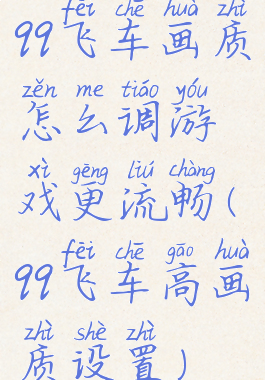 fēi chē huà zhì
99飞车画质
zěn me tiáo yóu
怎么调游
xì gēng liú chàng
戏更流畅(
fēi chē gāo huà
99飞车高画
zhì shè zhì
质设置)